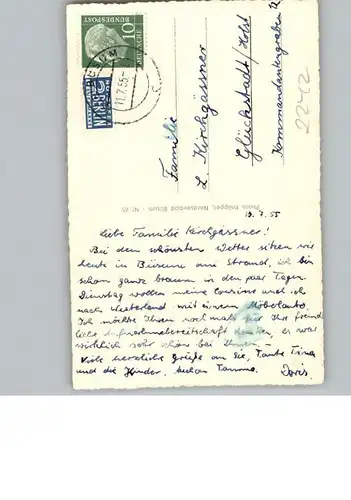 DEUTSCHE
BUNDESPOST
10
NOTOPFER
2
BERLIN
11.7.55
Familie
L. Kirchgässner
Glückstadt/Holst
Kommandantengraben
2242
Photo Knüppel, Nordseebad Büsum - Nr. 45
10.7.55
Liebe Familie Kirchgässner!
Bei dem schönsten Wetter sitzen wir
heute in Büsum am Strand, ich bin
schon ganz braun in den paar Tagen.
Dienstag wollen meine Cousine und ich
nach Westerland mit einem Möbelauto.
Ich möchte Ihnen nochmals für Ihre freund
liche Aufnahmebereitschaft danken, es war
wirklich sehr schön bei Ihnen. -
Viele herzliche Grüße an Sie, Tante Tina
und die Kinder, Doris.